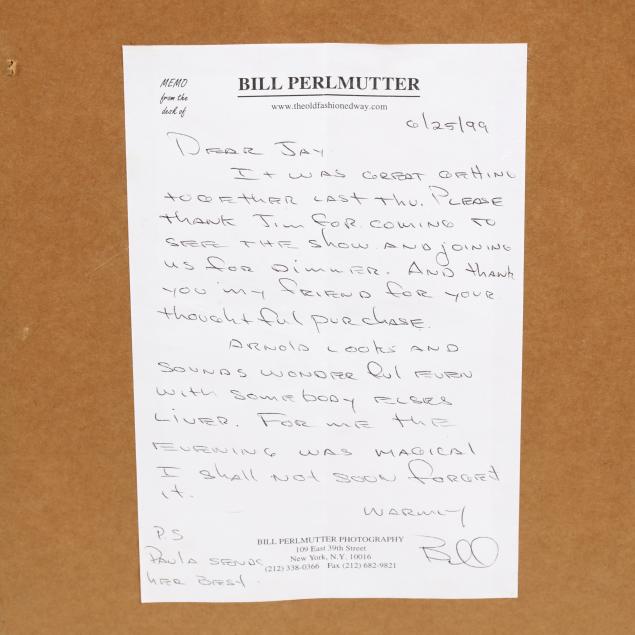 MEMO
from the
desk of
BILL PERLMUTTER
www.theoldfashionedway.com
6/25/99
DEAR JAY
IT WAS GREAT GETTING
TOGETHER LAST THU. PLEASE
THANK JIM FOR COMING TO
SEE THE SHOW AND JOINING
US FOR DINNER. AND THANK
YOU MY FRIEND FOR YOUR
THOUGHTFUL PURCHASE.
ARNOLD LOOKS AND
SOUNDS WONDERFUL EVEN
WITH SOMEBODY ELSES
LIVER. FOR ME THE
EVENING WAS MAGICAL
I SHALL NOT SOON FORGET
IT.
WARMLY
Bill
P.S
PAULA SENDS
HER BEST.
BILL PERLMUTTER PHOTOGRAPHY
109 East 39th Street
New York, N.Y. 10016
(212) 338-0366 Fax (212) 682-9821